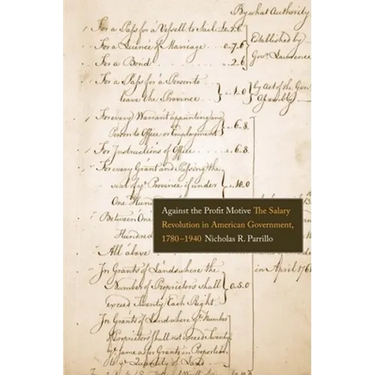 By what Authority
For a Pass for a Vessell to Sail
For a Licence of Marriage - 0.7.6
For a Bond - 2.6
Established by
Govr. Lawrence
For a Pass for a Person to
leave the Province
1.0
by Act of the Genl.
Assembly
For every Warrant appointing any
Person to Office or Employment
6.8
For Instructions of Office - 6.8
For every Grant and Passing the
Seal of ye Province if under
10.0
One Hundred
Between One
Hundred
All above
Against the Profit Motive The Salary
Revolution in American Government,
1780–1940 Nicholas R. Parrillo
in April 176
In Grants of Lands where the
Number of Proprietors shall
exceed Twenty Each Right
0.5.0
In Grants of Land where ye Number
of Proprietors shall not exceed Twenty
ye same as for Grants in Proportion
to ye Quantity of Land